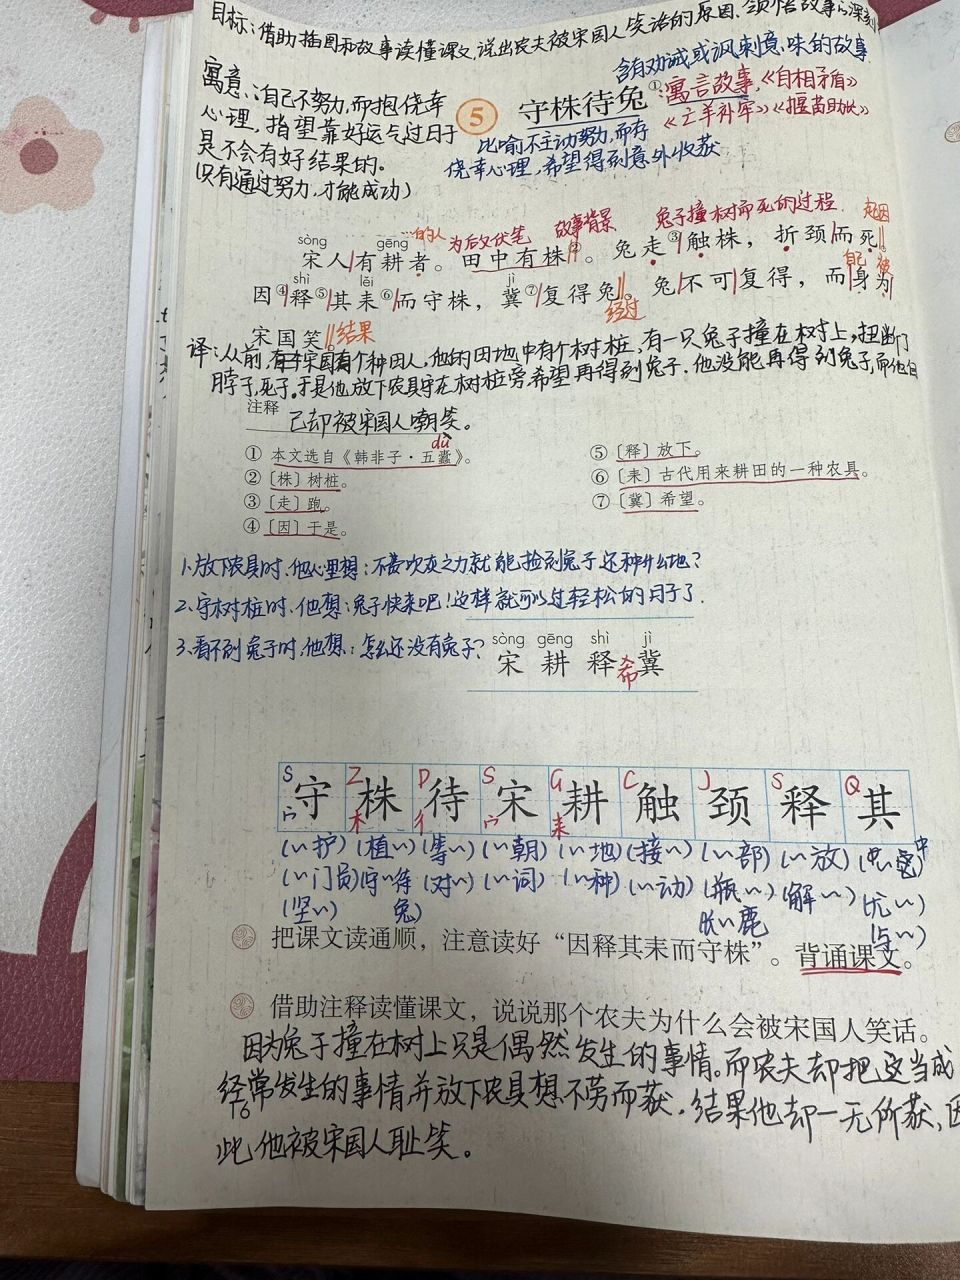 目标:借助插图和故事读懂课文,说出农夫被宋国人笑话的原因、领悟故事的深刻
含有劝诫或讽刺意味的故事
寓意:自己不努力,而抱侥幸
心理,指望靠好运气过日子
是不会有好结果的。
(只有通过努力,才能成功)
5 守株待兔①:寓言故事,《自相矛盾》
《亡羊补牢》《揠苗助长》
比喻不主动努力,而存
侥幸心理,希望得到意外收获
…的人 为后文伏笔 故事背景 兔子撞树而死的过程 起因
sòng gēng
宋人|有耕者。田中有株②‖。兔走③|触株,折颈|而死‖。
自己 被
shì lěi jì
因④|释⑤|其耒⑥|而守株,冀⑦|复得兔‖。兔|不可|复得,而|身为|
经过
宋国笑‖结果
译:从前,宋国有个种田人,他的田地中有个树桩,有一只兔子撞在树上,扭断了
脖子,死了。于是他放下农具守在树桩旁,希望再得到兔子,他没能再得到兔子,而他自
注释
己却被宋国人嘲笑。
dù
① 本文选自《韩非子·五蠹》。
② 〔株〕树桩。
③ 〔走〕跑。
④ 〔因〕于是。
⑤ 〔释〕放下。
⑥ 〔耒〕古代用来耕田的一种农具。
⑦ 〔冀〕希望。
1.放下农具时,他心里想:不费吹灰之力就能捡到兔子还种什么地?
2.守树桩时,他想:兔子快来吧!这样就可以过轻松的日子了.
3.看不到兔子时,他想:怎么还没有兔子?
sòng gēng shì jì
宋 耕 释 希 冀
S Z D S G C J S Q
守 株 待 宋 耕 触 颈 释 其
宀 木 彳 宀 耒
(〃护) (植〃) (等〃) (〃朝) (〃地) (接〃) (〃部) (〃放) (〃中)
(〃门员) (守〃待兔) (对〃) (〃词) (〃种) (〃动) (瓶〃) (解〃) (尤〃)
(坚〃) 长〃鹿 (与〃)
把课文读通顺,注意读好“因释其耒而守株”。背诵课文。
借助注释读懂课文,说说那个农夫为什么会被宋国人笑话。
因为兔子撞在树上只是偶然发生的事情。而农夫却把这当成
经常发生的事情并放下农具想不劳而获,结果他却一无所获,因
T6
此,他被宋国人耻笑。